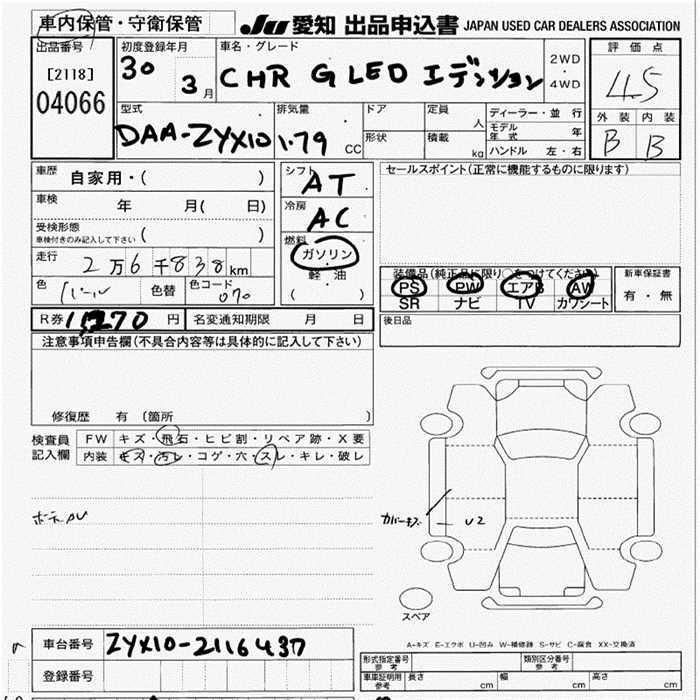 車内保管・守衛保管
JU 愛知 出品申込書 JAPAN USED CAR DEALERS ASSOCIATION
出品番号 初度登録年月 車名・グレード 評価点
[2118] 30 3月 CHR G LED エディション 2WD・4WD 4.5
04066
型式 排気量 ドア 定員 人 ディーラー・並行 外装 内装
DAA-ZYX10 1.79 CC 形状 積載 kg モデル年式 年 B B
ハンドル 左・右
車歴 自家用・( ) シフト AT セールスポイント(正常に機能するものに限ります)
車検 年 月( 日) 冷房 AC
受検形態 車検付きのみ記入して下さい ( )
燃料 ガソリン・軽油 ( )
走行 2万6千838km 装備品(純正品に限り○をつけてください) 新車保証書
色 パール 色替 色コード 070 PS PW エアB AW 有・無
SR ナビ TV カワシート
R券 11,270 円 名変通知期限 月 日 後日品
注意事項申告欄(不具合内容等は具体的に記入して下さい)
修復歴 有 〔箇所 〕
検査員記入欄 FW キズ・飛石・ヒビ割・リペア跡・X要
内装 キズ・汚レ・コゲ・穴・スレ・キレ・破レ
カバーキズ U2
スペア
A-キズ E-エクボ U-凹み W-補修跡 S-サビ C-腐食 XX-交換済
車台番号 ZYX10-2116437
登録番号
形式指定番号 参考 類別区分番号 参考
車庫証明用 参考 長さ cm 幅 cm 高さ cm